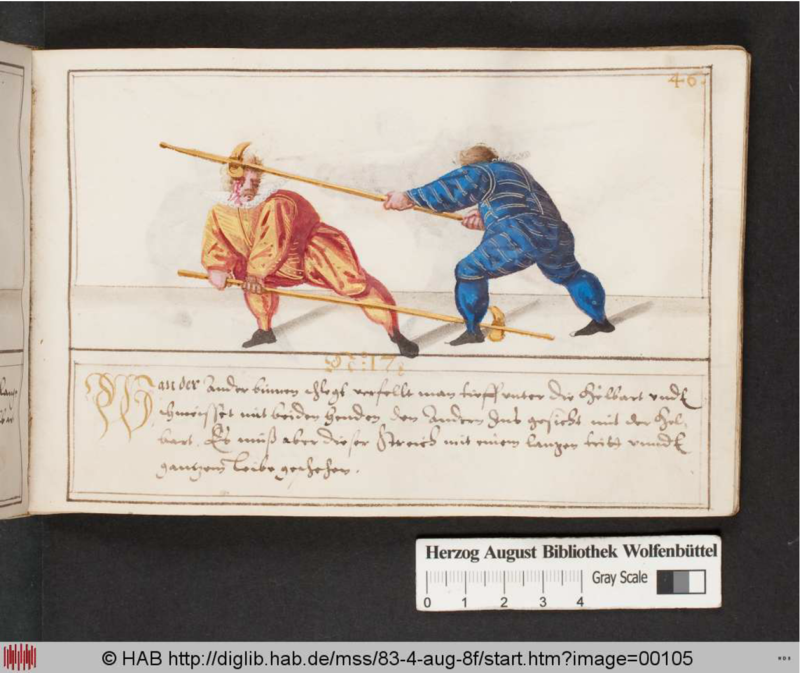 46.
N: 17:
Wan der Ander binnen schlegt verfellt man tieff unter die Helbart undt
schmeisset mit beiden henden den Andern Ins gesicht mit der Hel-
bart. Es muß aber dieser Streich mit einem langen tritt unndt
gantzem Leibe geschehen.
Herzog August Bibliothek Wolfenbüttel
Gray Scale
0 1 2 3 4
© HAB http://diglib.hab.de/mss/83-4-aug-8f/start.htm?image=00105